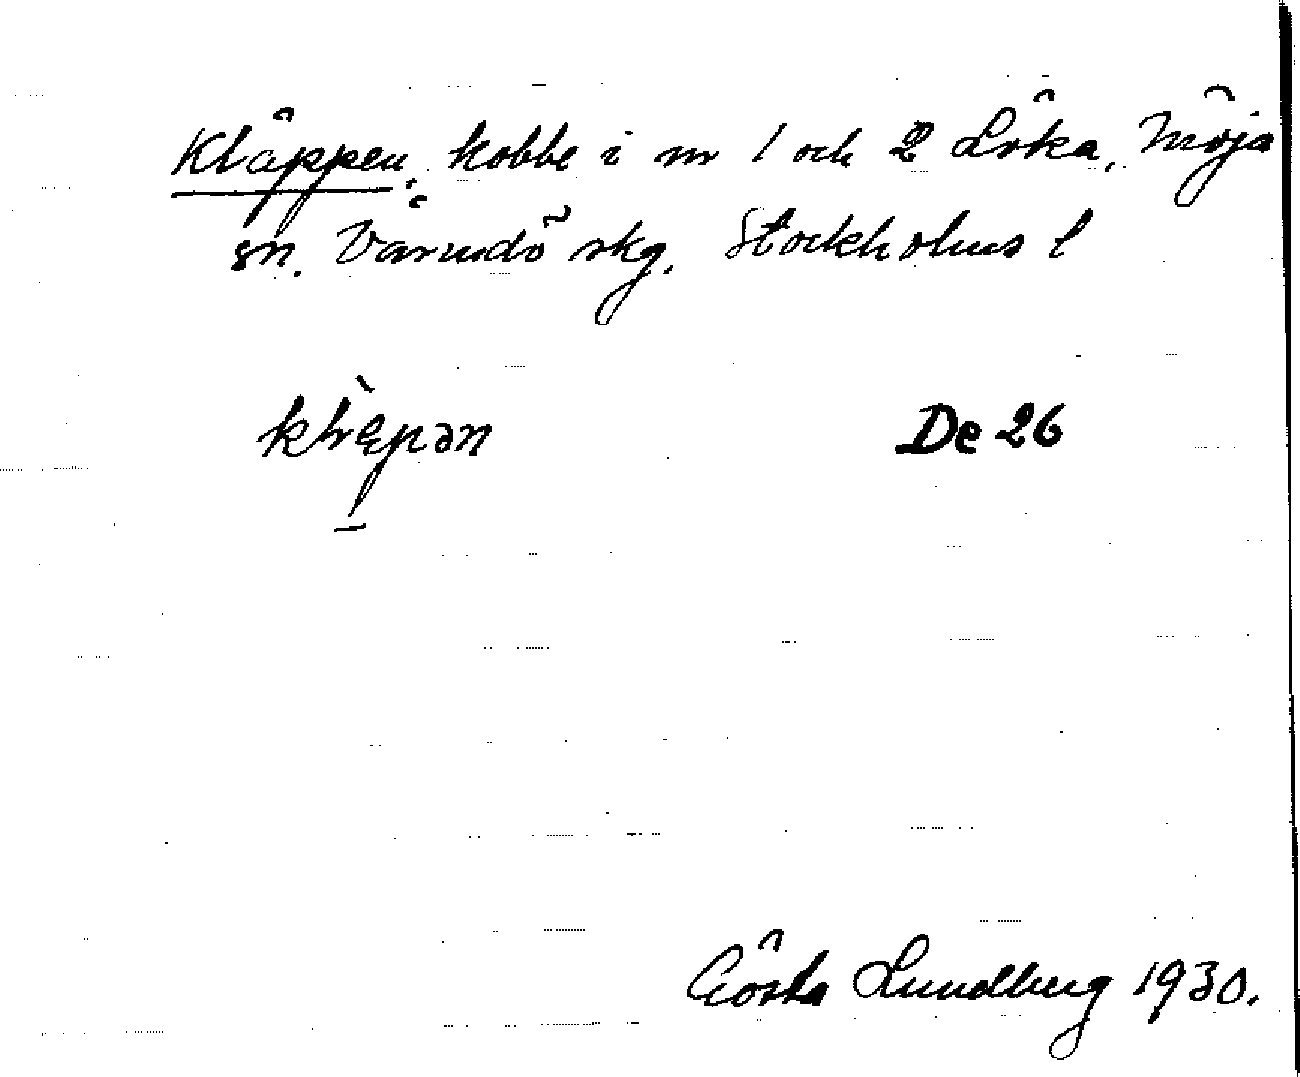 Kläppen, kobbe i nr 1 och 2 Löka, Möja
sn. Värmdö skg. Stockholms l
De 26
Gösta Lundberg 1930.